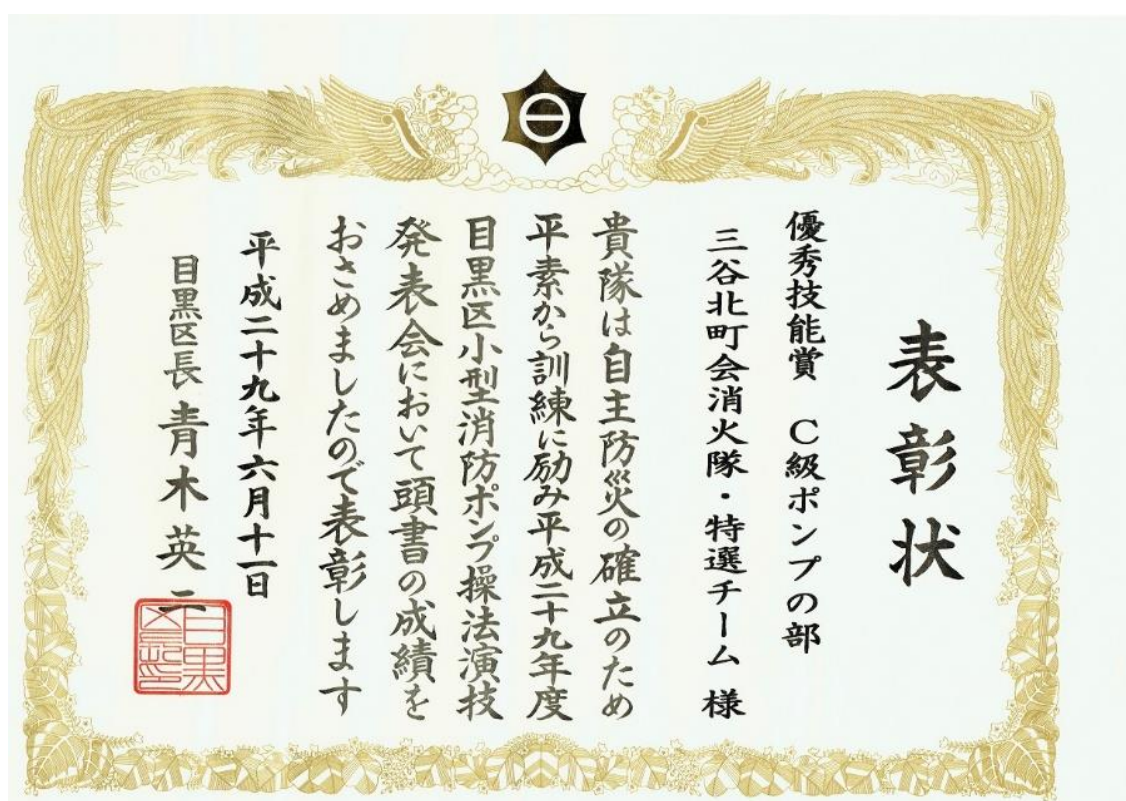 表彰状
優秀技能賞 C級ポンプの部
三谷北町会消火隊・特選チーム 様
貴隊は自主防災の確立のため
平素から訓練に励み平成二十九年度
目黒区小型消防ポンプ操法演技
発表会において頭書の成績を
おさめましたので表彰します
平成二十九年六月十一日
目黒区長 青木英二
目黒区長之印